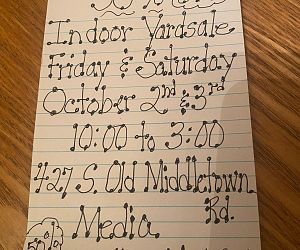 Indoor Yardsale
Friday & Saturday
October 2nd & 3rd
10:00 to 3:00
427 S. Old Middletown
Rd.
Media